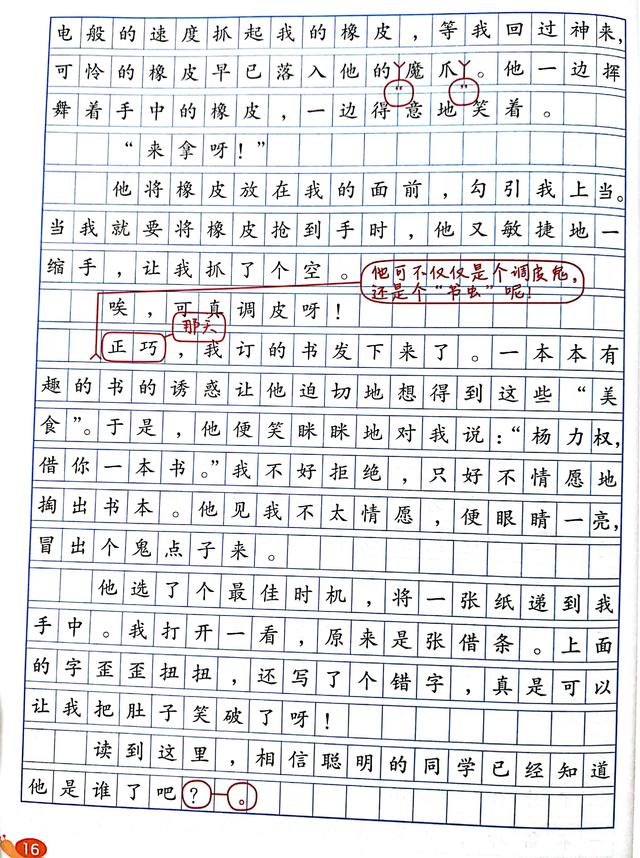 电般的速度抓起我的橡皮，等我回过神来，
可怜的橡皮早已落入他的魔爪。他一边挥
“ ”
舞着手中的橡皮，一边得意地笑着。
“来拿呀！”
他将橡皮放在我的面前，勾引我上当。
当我就要将橡皮抢到手时，他又敏捷地一
缩手，让我抓了个空。
他可不仅仅是个调皮鬼，
还是个“书虫”呢！
唉，可真调皮呀！
那天
正巧，我订的书发下来了。一本本有
趣的书的诱惑让他迫切地想得到这些“美
食”。于是，他便笑眯眯地对我说：“杨力权，
借你一本书。”我不好拒绝，只好不情愿地
掏出书本。他见我不太情愿，便眼睛一亮，
冒出个鬼点子来。
他选了个最佳时机，将一张纸递到我
手中。我打开一看，原来是张借条。上面
的字歪歪扭扭，还写了个错字，真是可以
让我把肚子笑破了呀！
读到这里，相信聪明的同学已经知道
他是谁了吧？。
16